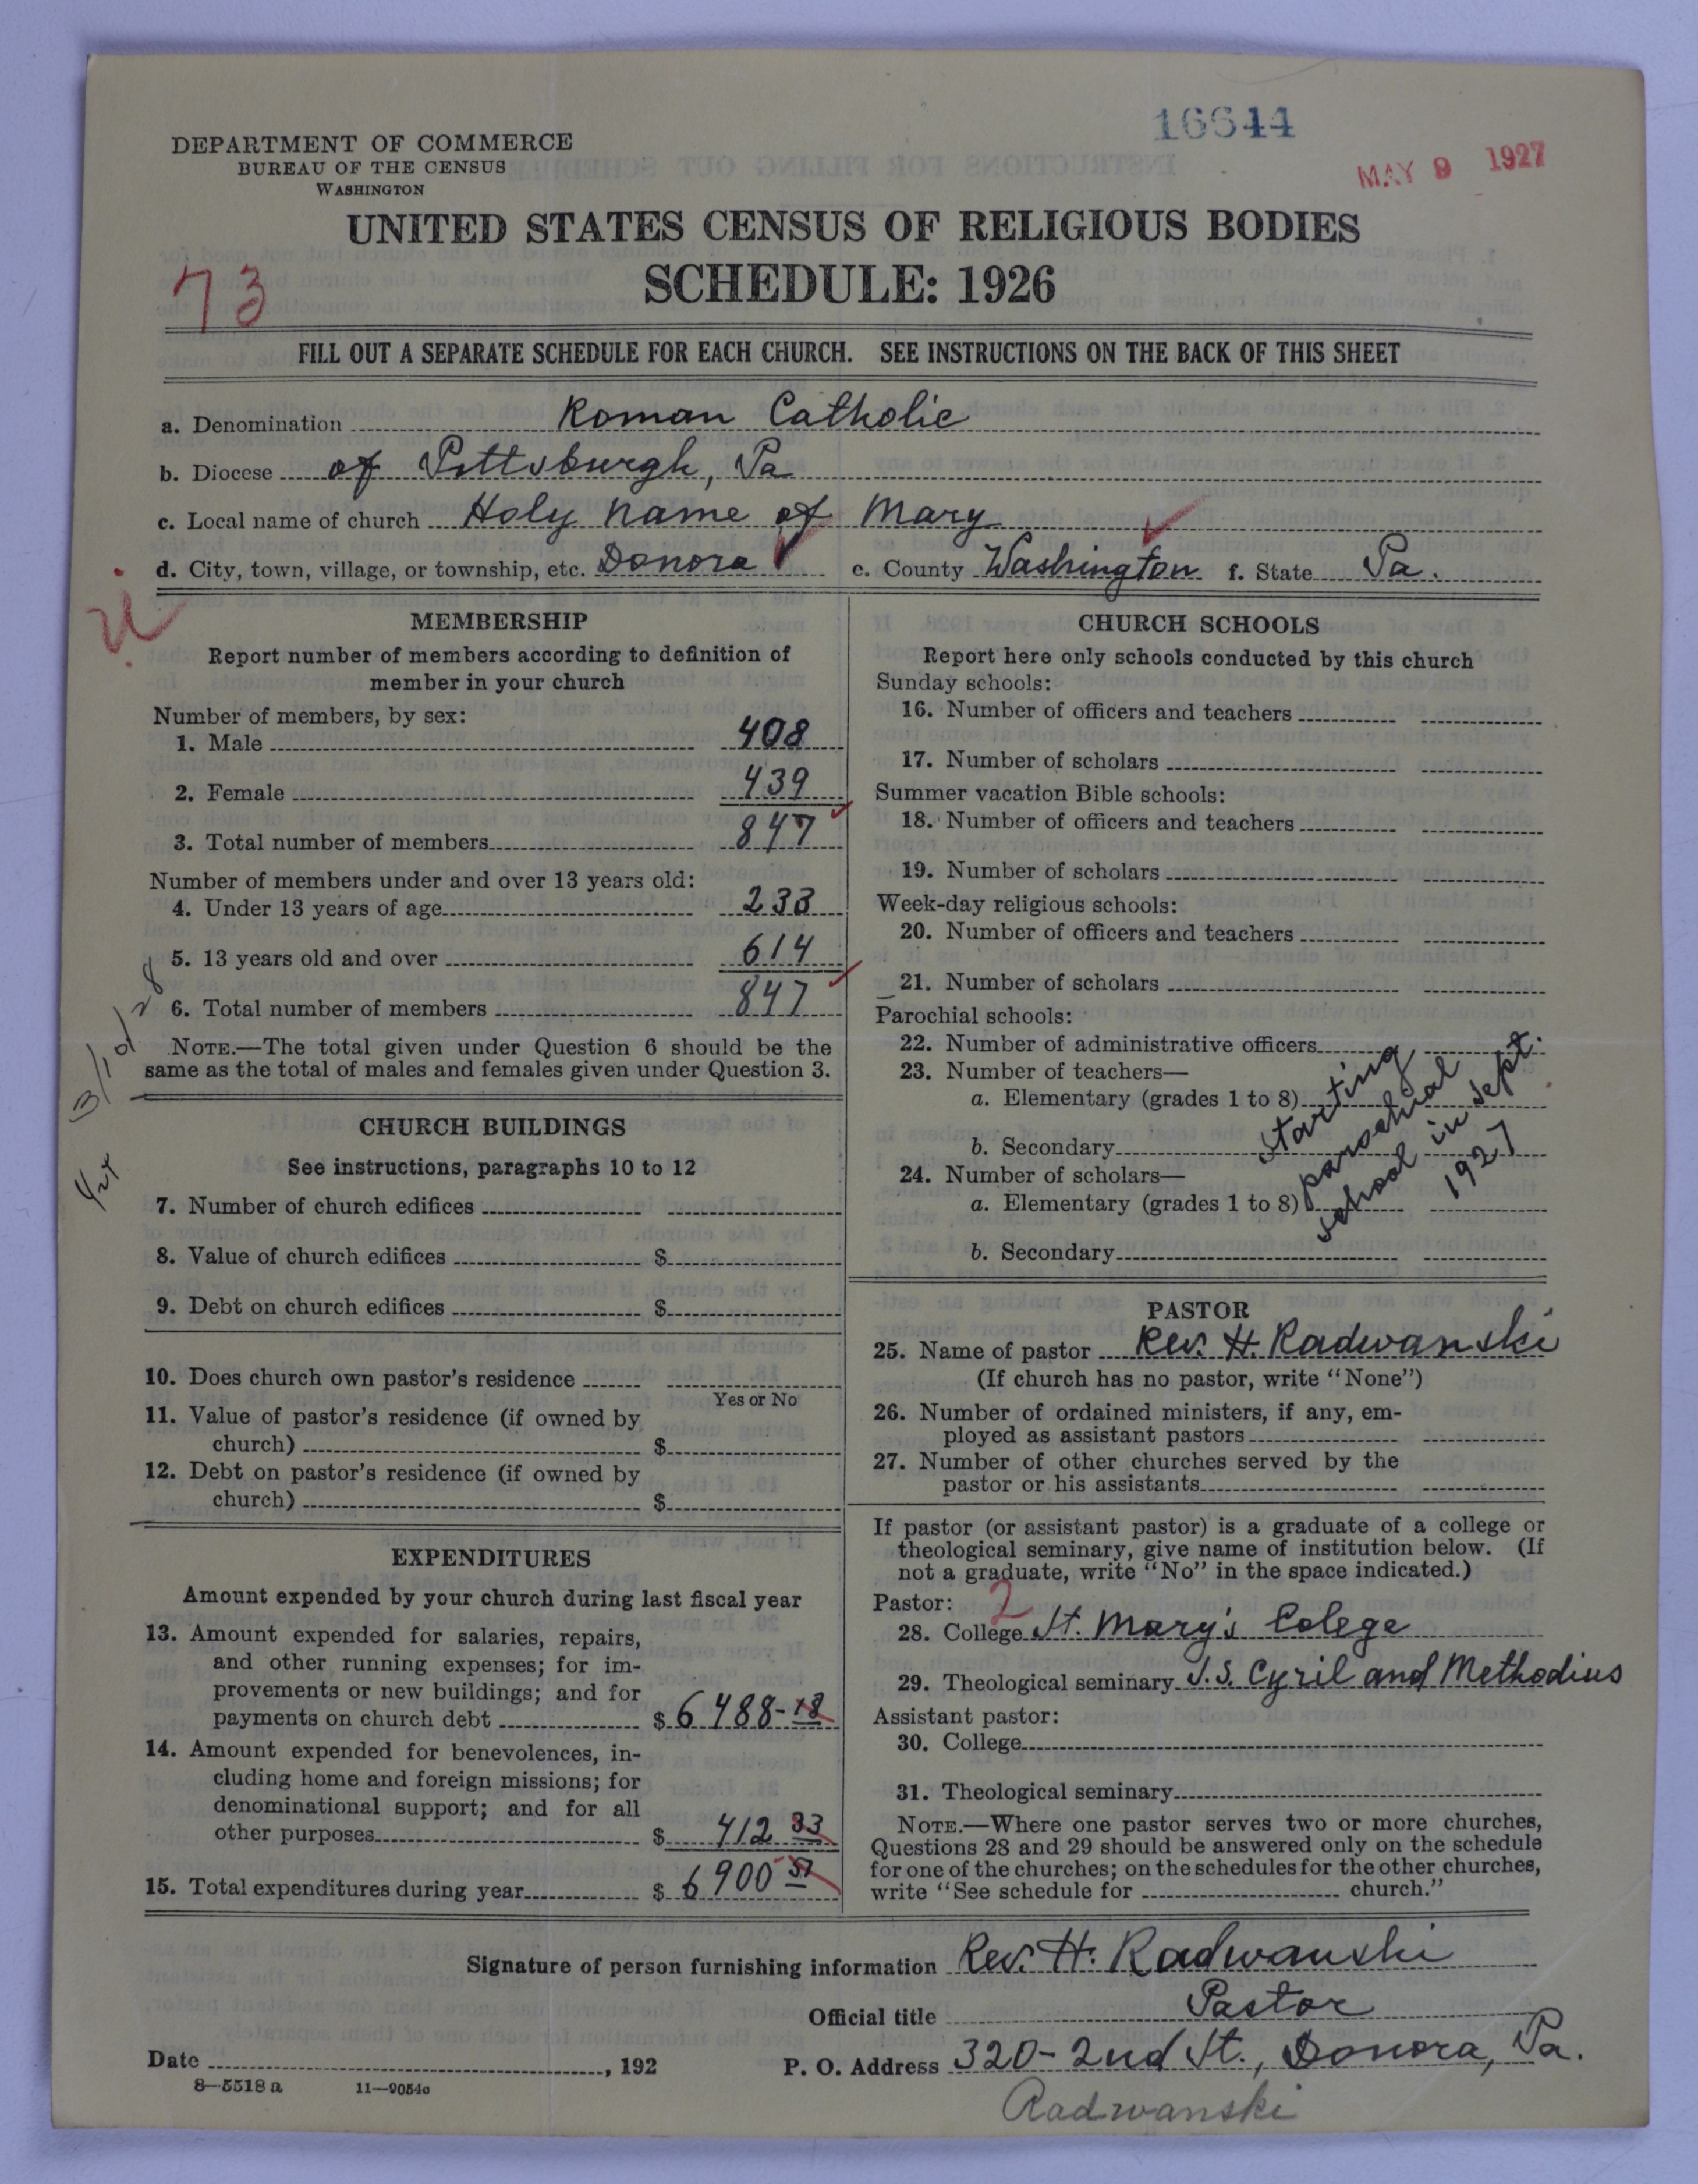 16644
MAY 9 1927
DEPARTMENT OF COMMERCE
BUREAU OF THE CENSUS
WASHINGTON
UNITED STATES CENSUS OF RELIGIOUS BODIES
SCHEDULE: 1926
73
FILL OUT A SEPARATE SCHEDULE FOR EACH CHURCH. SEE INSTRUCTIONS ON THE BACK OF THIS SHEET
a. Denomination Roman Catholic
b. Diocese of Pittsburgh, Pa
c. Local name of church Holy Name of Mary
d. City, town, village, or township, etc. Donora e. County Washington f. State Pa.
MEMBERSHIP
Report number of members according to definition of
member in your church
Number of members, by sex:
1. Male 408
2. Female 439
3. Total number of members 847
Number of members under and over 13 years old:
4. Under 13 years of age 233
5. 13 years old and over 614
6. Total number of members 847
NOTE.—The total given under Question 6 should be the
same as the total of males and females given under Question 3.
3/10/28
CHURCH BUILDINGS
See instructions, paragraphs 10 to 12
7. Number of church edifices
8. Value of church edifices $
9. Debt on church edifices $
10. Does church own pastor's residence
Yes or No
11. Value of pastor's residence (if owned by
church) $
12. Debt on pastor's residence (if owned by
church) $
EXPENDITURES
Amount expended by your church during last fiscal year
13. Amount expended for salaries, repairs,
and other running expenses; for im-
provements or new buildings; and for
payments on church debt $ 6488-18
14. Amount expended for benevolences, in-
cluding home and foreign missions; for
denominational support; and for all
other purposes $ 412 33
15. Total expenditures during year $ 6900 51
CHURCH SCHOOLS
Report here only schools conducted by this church
Sunday schools:
16. Number of officers and teachers
17. Number of scholars
Summer vacation Bible schools:
18. Number of officers and teachers
19. Number of scholars
Week-day religious schools:
20. Number of officers and teachers
21. Number of scholars
Parochial schools:
22. Number of administrative officers
23. Number of teachers—
a. Elementary (grades 1 to 8)
b. Secondary
24. Number of scholars—
a. Elementary (grades 1 to 8)
b. Secondary
Starting
parochial
school in Sept.
1927
PASTOR
25. Name of pastor Rev. H. Radwanski
(If church has no pastor, write "None")
26. Number of ordained ministers, if any, em-
ployed as assistant pastors
27. Number of other churches served by the
pastor or his assistants
If pastor (or assistant pastor) is a graduate of a college or
theological seminary, give name of institution below. (If
not a graduate, write "No" in the space indicated.)
Pastor: 2
28. College St. Mary's Colege
29. Theological seminary S.S. Cyril and Methodius
Assistant pastor:
30. College
31. Theological seminary
NOTE.—Where one pastor serves two or more churches,
Questions 28 and 29 should be answered only on the schedule
for one of the churches; on the schedules for the other churches,
write "See schedule for church."
Signature of person furnishing information Rev. H. Radwanski
Official title Pastor
Date , 192 P. O. Address 320-2nd St., Donora, Pa.
8-5518 a 11-9054c
Radwanski